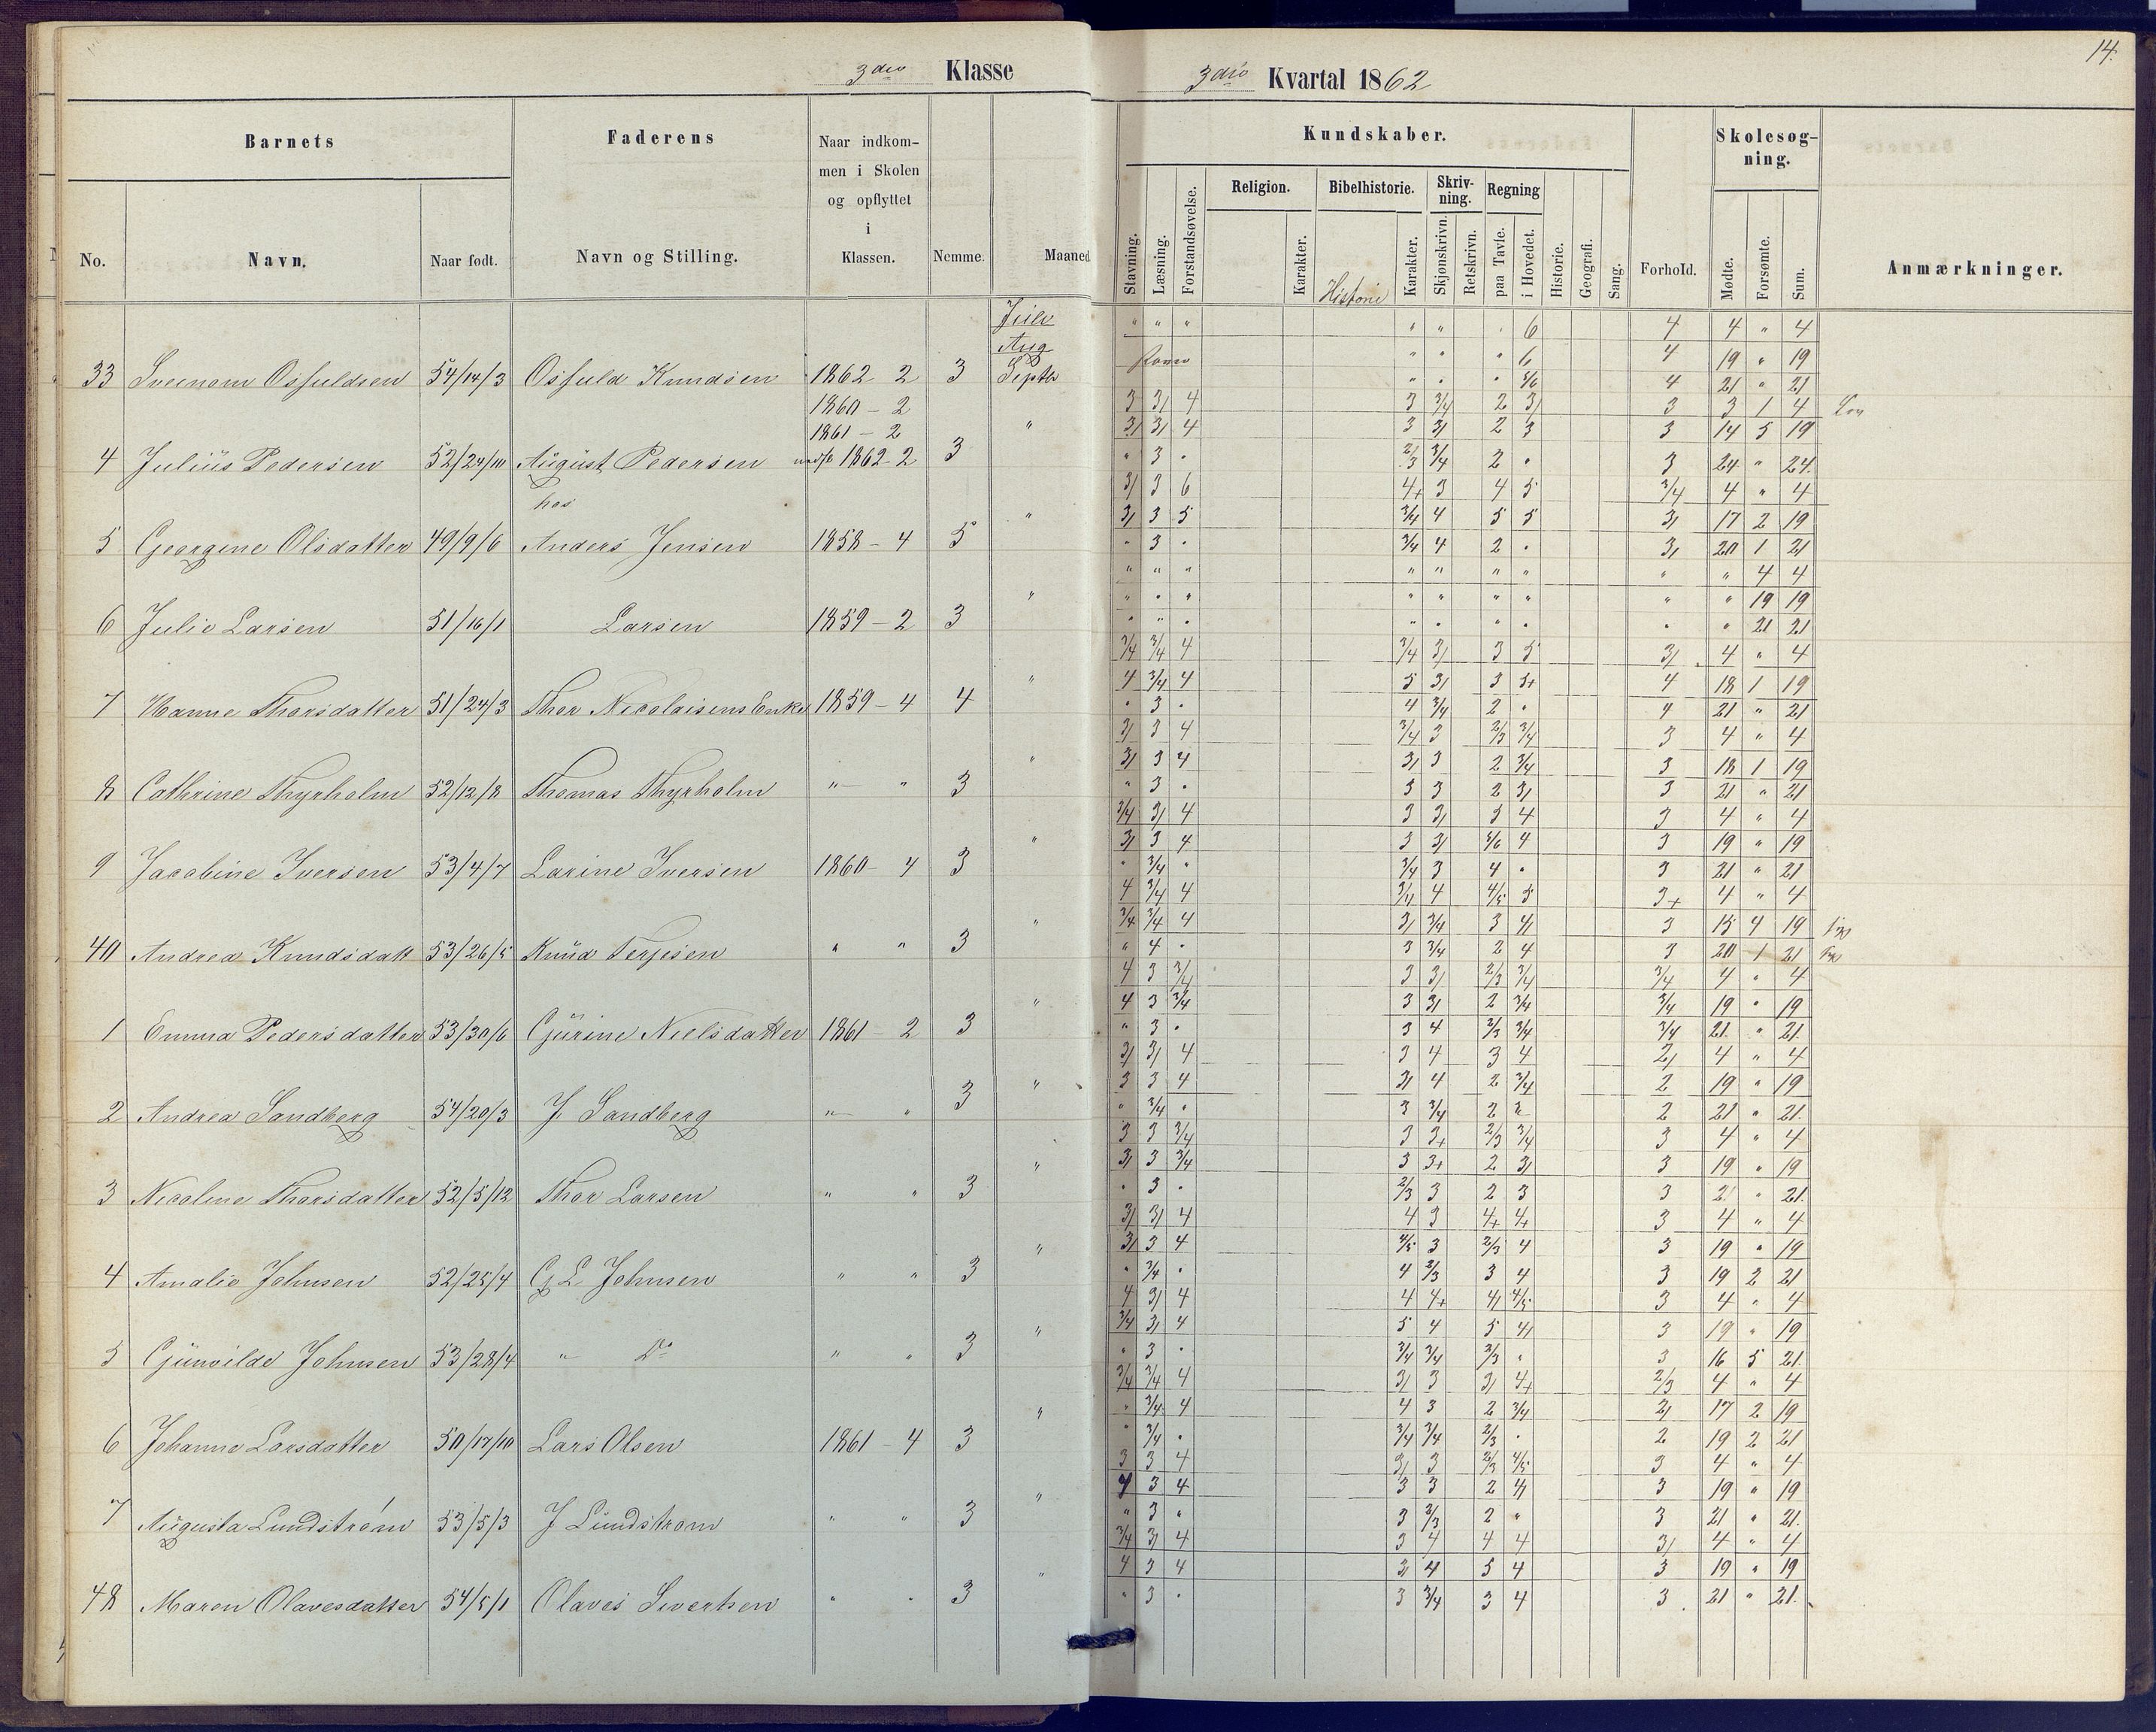 14.
3die Klasse
3die Kvartal 1862
Barnets
Faderens
Naar indkommen i Skolen og opflyttet i Klassen.
Kundskaber.
Skolesøgning.
No.
Navn.
Naar født.
Navn og Stilling.
Nemme.
Maaned
Stavning.
Læsning.
Forstandsøvelse.
Religion.
Karakter.
Bibelhistorie.
Historie
Karakter.
Skrivning.
Skjønskrivn.
Retskrivn.
Regning
paa Tavle.
i Hovedet.
Historie.
Geografi.
Sang.
Forhold.
Mødte.
Forsømte.
Sum.
Anmærkninger.
Juli " " " " " 6 4 4 " 4
Aug " " " 6 4 19 " 19
33 Osfuldsen 54/14/3 Osfuld Knudsen 1862 2 3 Septb " " " 5/6 4 21 " 21
1860 - 2 3 3/ 4 3 3/4 2 3/ 3 3 1 4
1861 - 2 " 3/ 3/ 4 3 3/ 2 3 3 14 5 19
4 Julius Pedersen 52/24/10 August Pedersen 1862 2 3 " 3 " 2/3 3/4 2 " 3 24 " 24
hos 3/ 3 6 4+ 3 4 5 3/4 4 " 4
" 3/ 3 5 3/4 4 5 5 3/ 17 2 19
5 Georgine Olsdatter 49/9/6 Anders Jensen 1858 - 4 5 " 3 " 3/4 4 2 " 3/ 20 1 21
" " " " " " " " " 4 4
" " " " " " " " " " 19 19
6 Julie Larsen 51/16/1 Larsen 1859 - 2 3 " " " " " " " " " 21 21
3/4 3/4 4 3/4 3/ 3 5 3/ 4 " 4
" 4 3/4 4 5 3/ 3 5+ 4 18 1 19
7 Hanne Thorsdatter 51/24/3 Thor Nicolaisens Enke 1859 - 4 4 " 3 " 4 3/4 2 " 4 21 " 21
3/ 3 4 3/4 3 2/3 3/4 3 4 " 4
" 3/ 3 4 3/ 3 2 3/4 3 18 1 19
8 Cathrine Thyrholm 52/12/8 Thomas Thyrholm " - " 3 " 3 " 3 3 2 3/ 3 21 " 21
3/4 3/ 4 3 3/ 3 4 3 4 " 4
" 3/ 3 4 3 3/ 5/6 4 3 19 " 19
9 Jacobine Iversen 53/4/7 Larine Iversen 1860 - 4 3 " 3/4 " 3/4 3 4 " 3 21 " 21
4 3/4 4 3/4 4 4/5 5 3+ 4 " 4
" 3/4 3/4 4 3/ 3/4 3 4/ 3 15 4 19
40 Andrea Knudsdatt 53/26/5 Knud Terjesen " " 3 " 4 " 3 3/4 2 4 3 20 1 21
4 3 3/4 3 3/ 2/3 3/4 3/4 4 " 4
" 4 3 3/4 3 3/ 2 3/4 3/4 19 " 19
1 Emma Pedersdatter 53/30/6 Gurine Nielsdatter 1861 - 2 3 " 3 " 3 4 2/3 3/4 3/4 21. " 21.
3/ 3/ 4 3 4 3 4 2/ 4 " 4
" 3 3 4 3/ 4 2 3/4 2 19 " 19
2 Andrea Sandberg 54/20/3 J. Sandberg " - " 3 " 3/4 " 3 3/4 2 2 21 " 21.
3 3 3/4 3 3+ 2/3 3/4 3 4 " 4
" 3/ 3 3/4 3 3+ 2 3/ 3 19 " 19
3 Nicoline Thorsdatter 52/5/12 Thor Larsen " " 3 " 3 " 2/3 3 2 3 3 21 " 21.
3/ 3/ 4 4 3 4+ 4+ 3 4 " 4
" 3/ 3 4 4/5 3 2/3 4 3 19 " 19
4 Amalie Johnsen 52/25/4 G L Johnsen " " 3 " 3/4 " 4 2/3 3 4 3 19 2 21
4 3/ 4 4 4+ 4/ 4/5 3 4 " 4
" 3/4 3/ 4 5 4 5 4/ 3 19 " 19
5 Gunvilde Johnsen 53/28/4 " Do " " 3 " 3 " 3/4 3/4 2/3 " 3 16 5 21.
3/4 3/4 4 3/ 3 3/ 4+ 2/3 4 " 4
" " 3/4 4 4 3 2 3/4 2/ 17 2 19
6 Johanne Larsdatter 50/17/10 Lars Olsen 1861 - 4 3 " 3/4 " 3/4 3/4 2/3 " 2 19 2 21
3 3 4 3/ 3 2/3 4/5 3 4 " 4
" 4 3 4 3 3 2 4/ 3 19 " 19
7 Augusta Lundstrøm 53/5/3 J Lundstrøm " " 3 " 3 " 3 2/3 2 " 3 21 " 21.
3/4 3/ 4 3 4 4 4 3/ 4 " 4
" 4 3 4 3/ 4 5 4 3 19 " 19
48 Maren Olavesdatter 54/5/1 Olaves Sivertsen " " 3 " 3 " 3 3/4 3 4 3. 21 " 21.